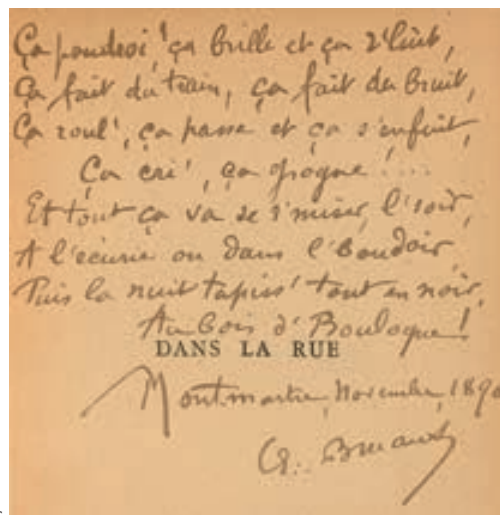 Ça poudroi' ça brille et ça r'luit,
Ça fait du train, ça fait du bruit,
Ça roul', ça passe et ça s'enfuit,
Ça cri', ça grogne!...
Et tout ça va se r'miser, l'soir,
A l'écurie ou dans l'Boudoir,
Puis la nuit tapiss' tout en noir,
Au Bois d'Boulogne!
DANS LA RUE
Montmartre, Novembre, 1890
A. Bruant